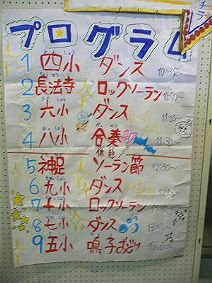 プログラム
1 四小 ダンス 10:30~
2 長法寺 ロックソーラン
3 六小 ダンス
4 八小 合奏
休憩
5 神足 ソーラン節 12:30~
6 九小 ダンス
7 十小 ロックソーラン
8 七小 ダンス
9 五小 鳴子おどり